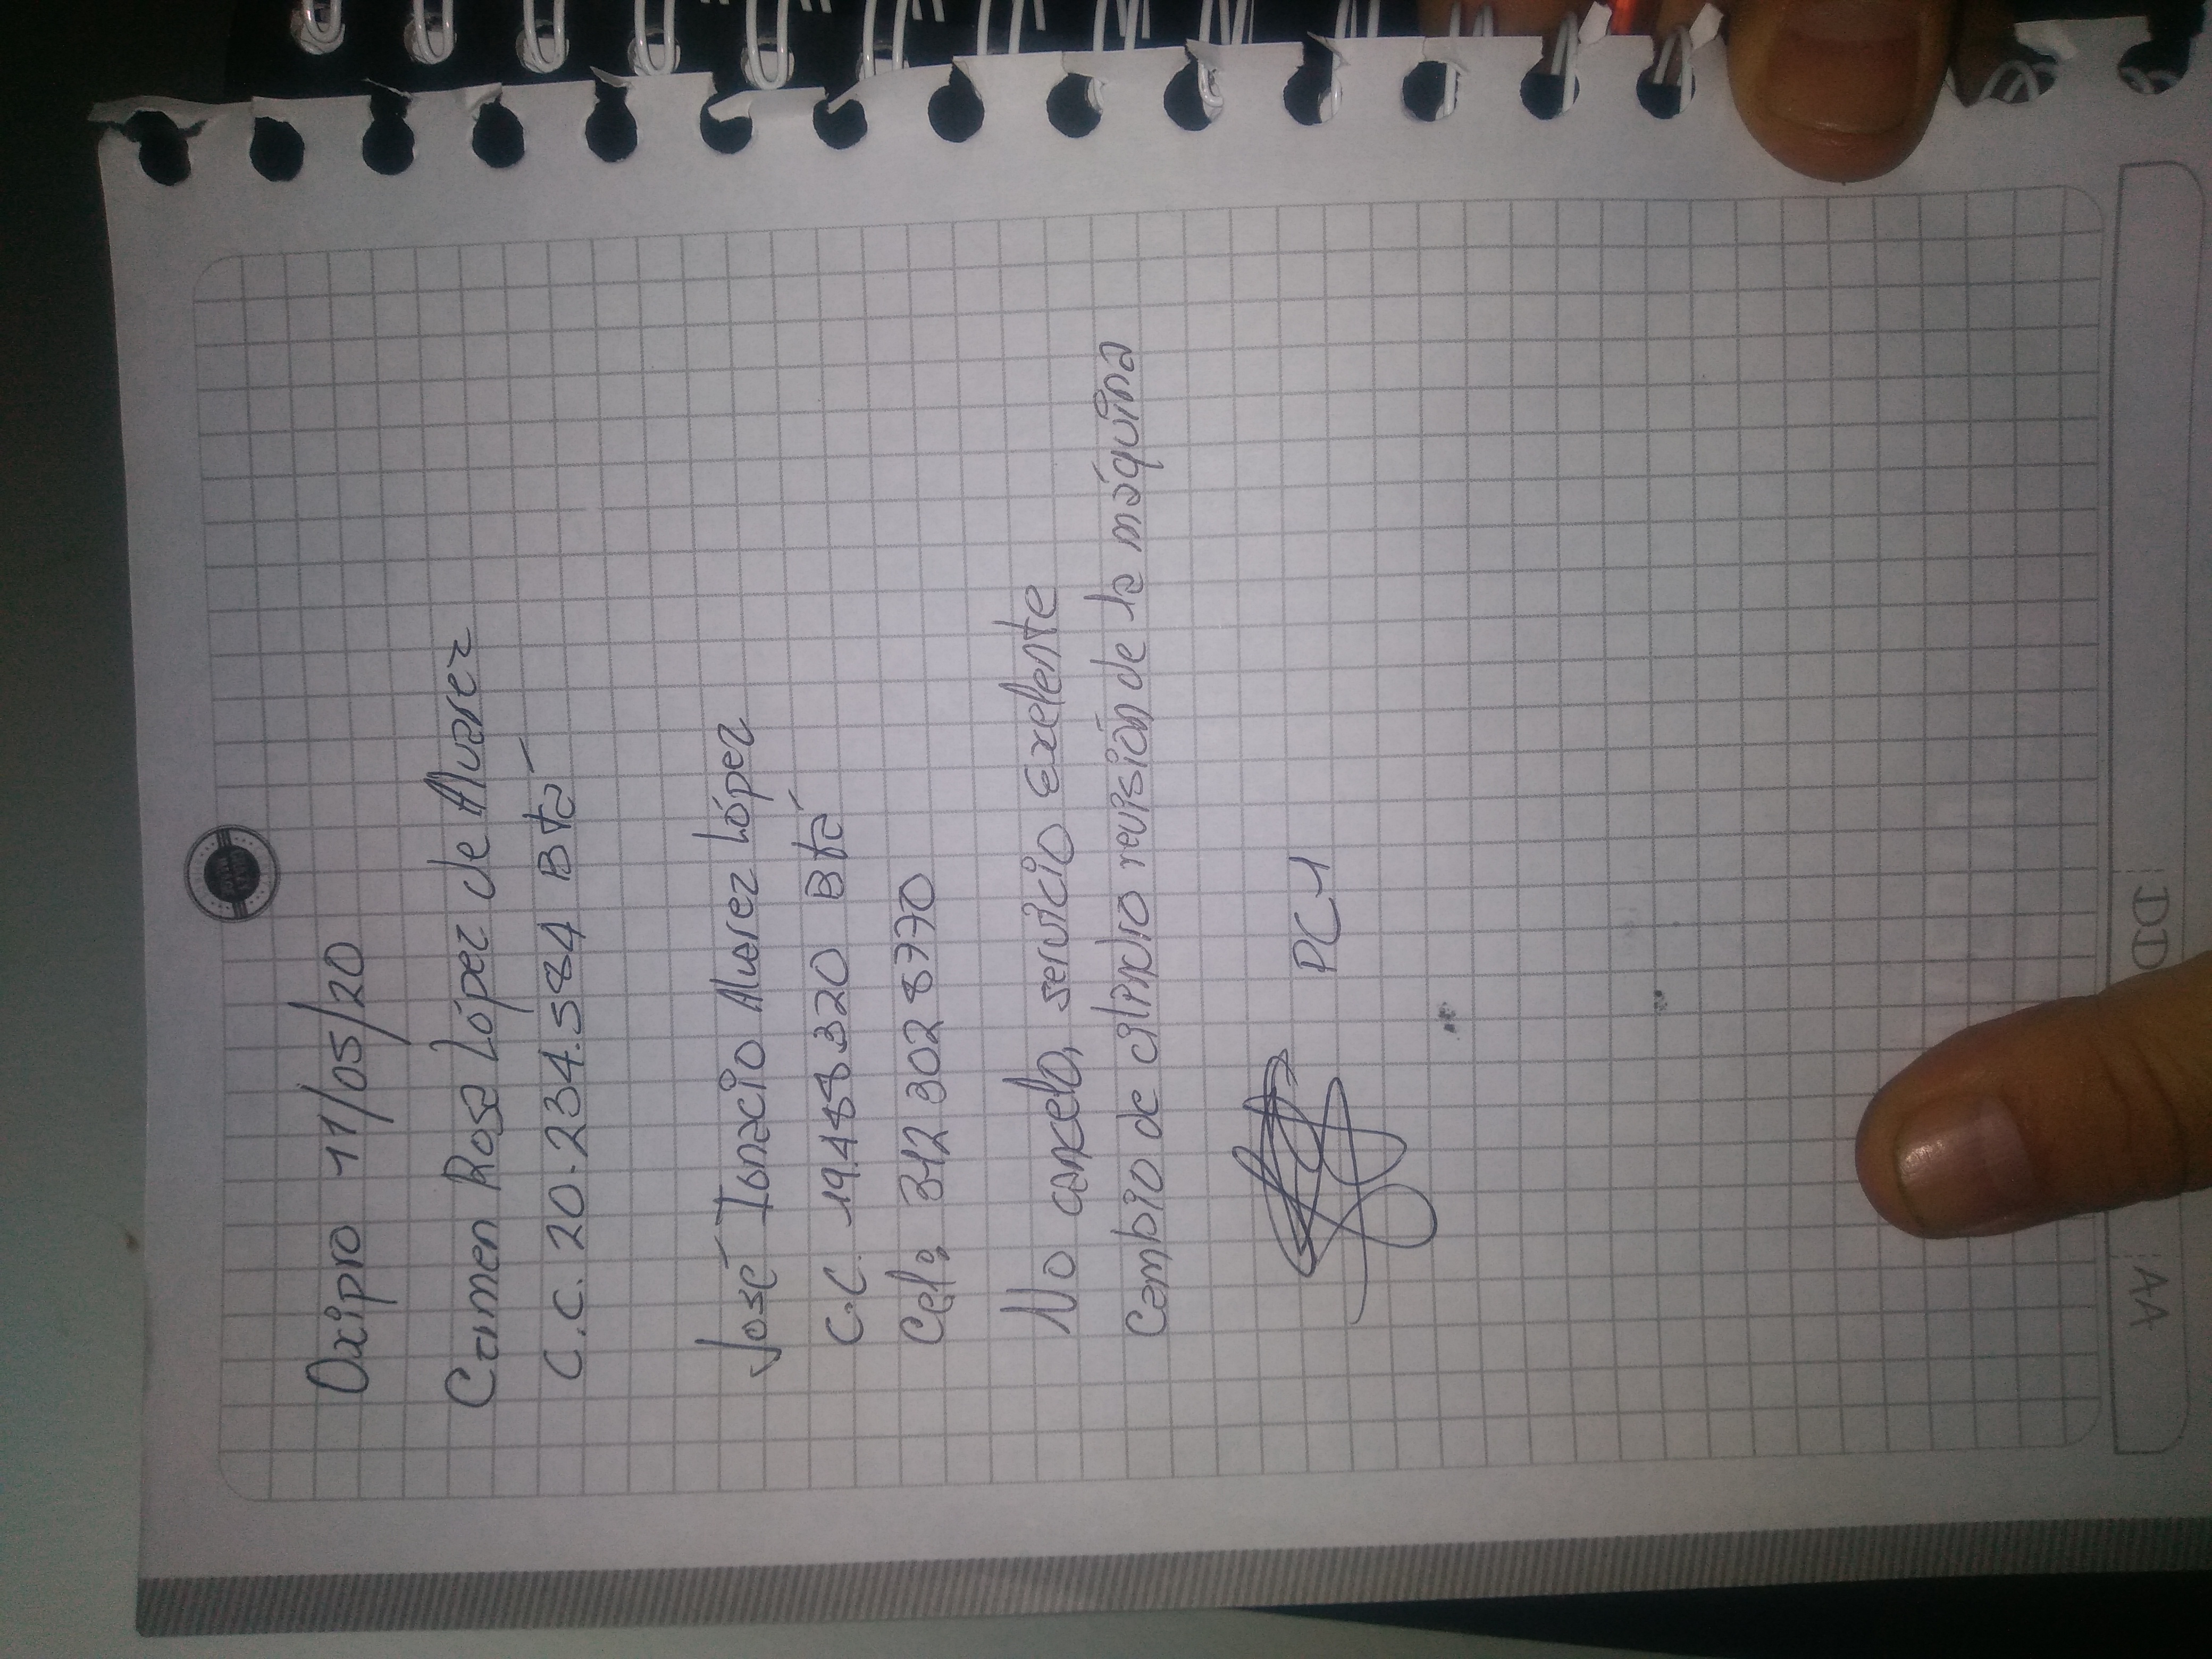 Oxipro 11/05/20
Carmen Rosa López de Alvarez
C.C. 20.234.584 Btá
José Ignacio Alvarez López
C.C. 19.488.320 Btá
Cel: 312 302 8770
No cancelo, servicio exelente
Cambio de cilindro revisión de la máquina
PC-1
DD
AA